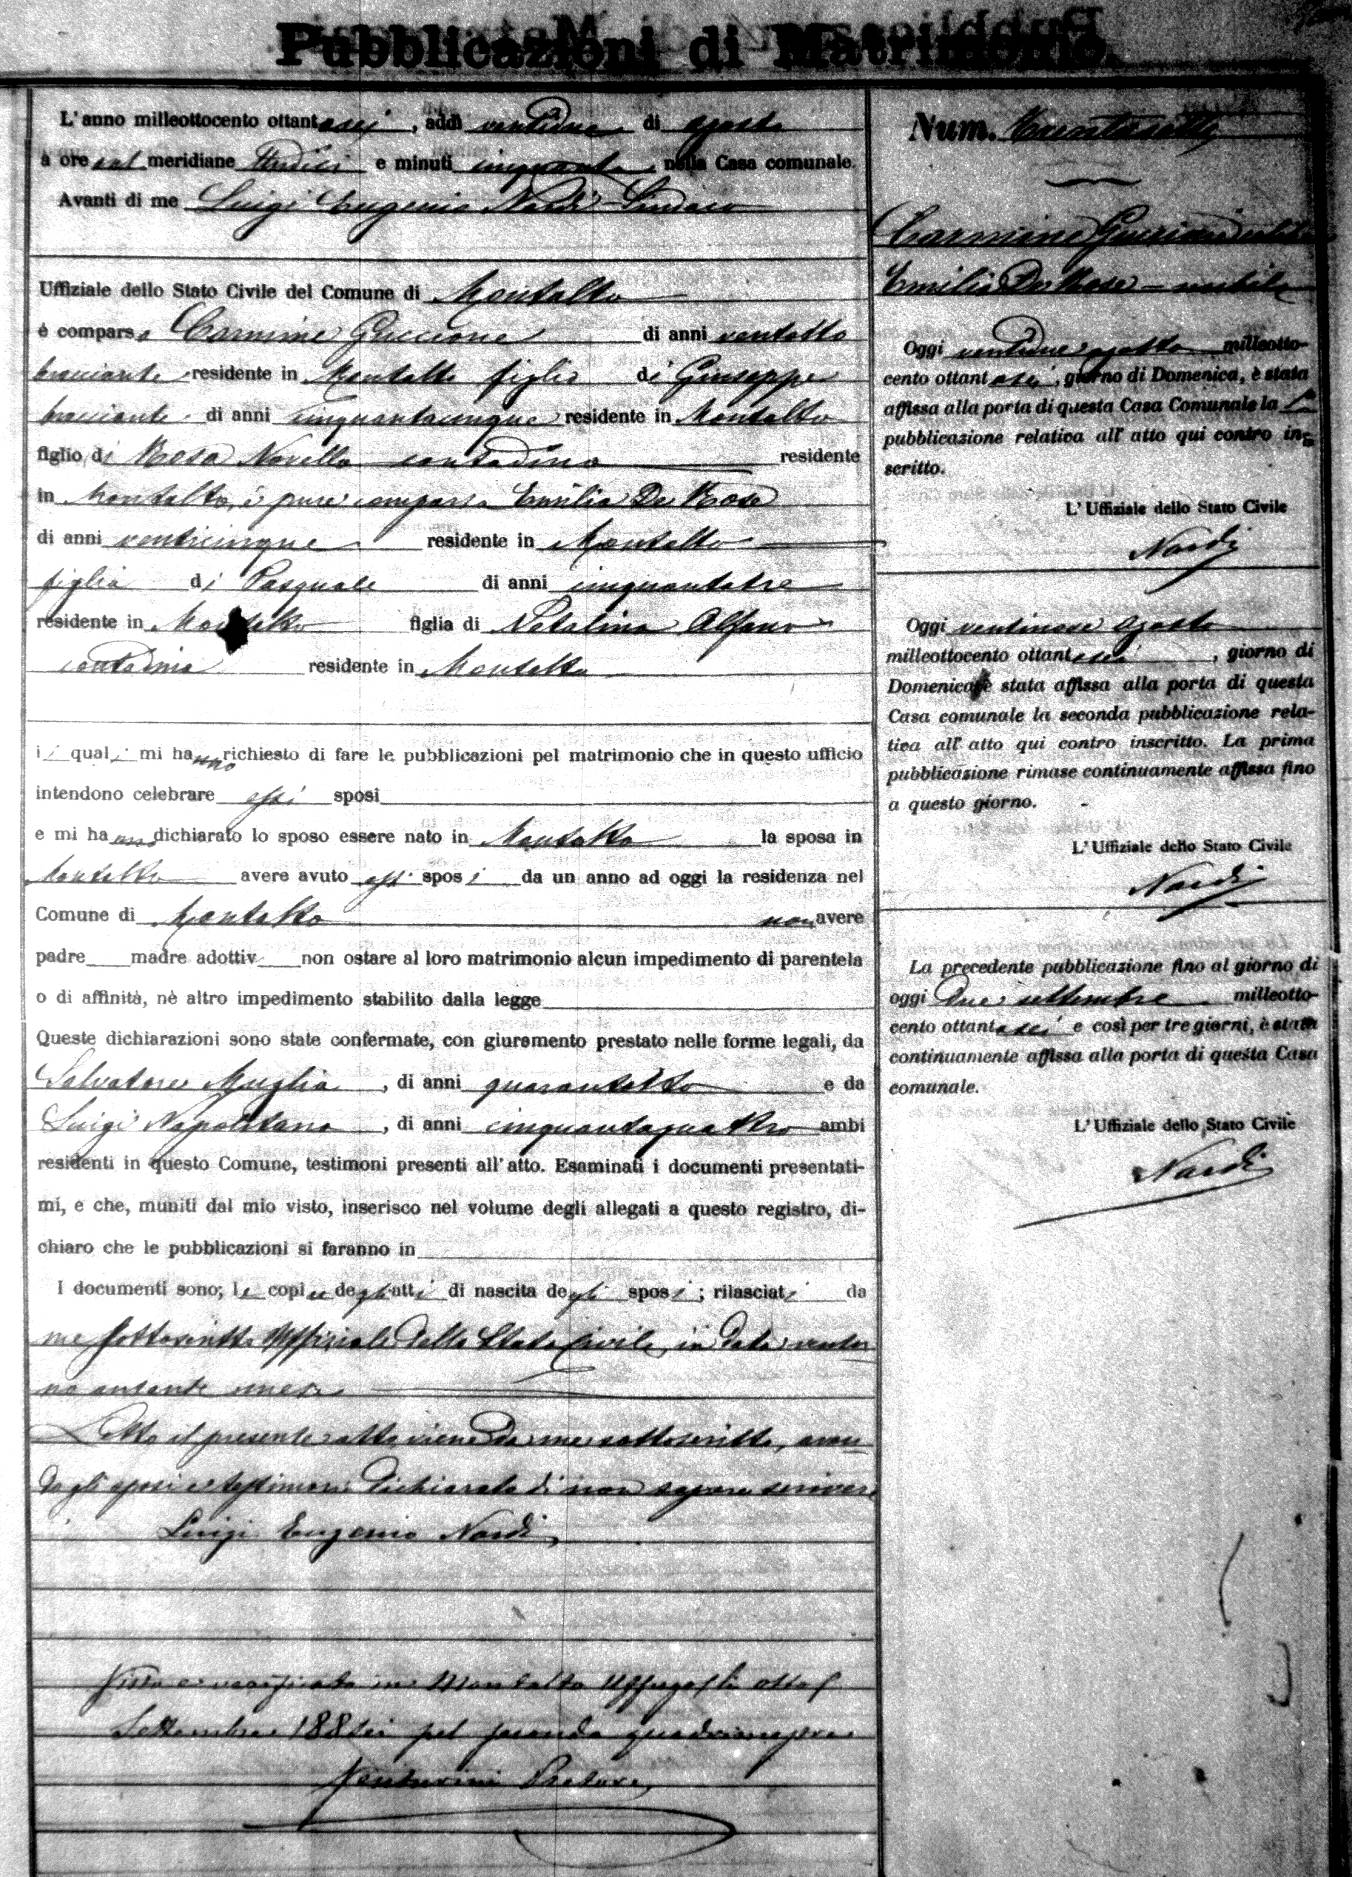 Pubblicazioni di Matrimonio.
L'anno milleottocento ottantasei, addì ventidue di agosto
a ore ant meridiane undici e minuti cinquanta, nella Casa comunale.
Avanti di me Luigi Eugenio Nardi Sindaco
Uffiziale dello Stato Civile del Comune di Montalto
è comparso Carmine Guccione di anni ventotto
bracciante residente in Montalto figlio di Giuseppe
bracciante di anni cinquantacinque residente in Montalto
figlio di Rosa Novello contadina residente
in Montalto, è pure comparsa Emilia De Rose
di anni venticinque residente in Montalto
figlia di Pasquale di anni cinquantatre
residente in Montalto figlia di Natalina Alfano
contadina residente in Montalto
i i quali mi hanno richiesto di fare le pubblicazioni pel matrimonio che in questo ufficio
intendono celebrare essi sposi
e mi hanno dichiarato lo sposo essere nato in Montalto la sposa in
Montalto avere avuto essi sposi da un anno ad oggi la residenza nel
Comune di Montalto non avere
padre madre adottiv non ostare al loro matrimonio alcun impedimento di parentela
o di affinità, nè altro impedimento stabilito dalla legge
Queste dichiarazioni sono state confermate, con giuramento prestato nelle forme legali, da
Salvatore Muglia, di anni quarantotto e da
Luigi Napolitano, di anni cinquantaquattro ambi
residenti in questo Comune, testimoni presenti all'atto. Esaminati i documenti presentati-
mi, e che, muniti dal mio visto, inserisco nel volume degli allegati a questo registro, di-
chiaro che le pubblicazioni si faranno in
I documenti sono; le copie degli atti di nascita degli sposi; rilasciati da
me sottoscritto Uffiziale dello Stato Civile, in data ventu
no andante mese
Letto il presente atto viene da me sottoscritto, aven
do gli sposi e testimoni dichiarato di non sapere scrivere
Luigi Eugenio Nardi
Visto e verificato in Montalto Uffugo li otto
Settembre 188sei pel secondo quadrimestre
Pretore
Num. trentasette
Carmine Guccione celibe
Emilia De Rose - nubile
Oggi ventidue agosto milleotto-
cento ottantasei, giorno di Domenica, è stata
affissa alla porta di questa Casa Comunale la 1a
pubblicazione relativa all'atto qui contro in-
scritto.
L'Uffiziale dello Stato Civile
Nardi
Oggi ventinove agosto
milleottocento ottantasei, giorno di
Domenica è stata affissa alla porta di questa
Casa comunale la seconda pubblicazione rela-
tiva all'atto qui contro inscritto. La prima
pubblicazione rimase continuamente affissa fino
a questo giorno.
L'Uffiziale dello Stato Civile
Nardi
La precedente pubblicazione fino al giorno di
oggi due settembre milleotto-
cento ottantasei e così per tre giorni, è stata
continuamente affissa alla porta di questa Casa
comunale.
L'Uffiziale dello Stato Civile
Nardi